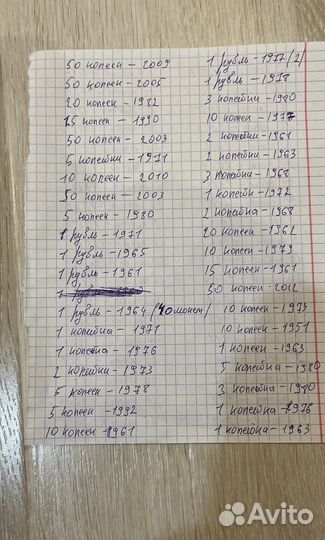 50 копеек – 2009
50 копеек – 2005
20 копеек – 1982
15 копеек – 1990
50 копеек – 2003
5 копейки – 1971
10 копеек – 2010
50 копеек – 2003
5 копеек – 1980
1 рубль – 1971
1 рубль – 1965
1 рубль – 1961
1 рубль – 1964 (40 монет)
1 копейка – 1971
1 копейка – 1976
2 копейки – 1973
5 копеек – 1978
5 копеек – 1992
10 копеек – 1961
1 рубль – 1977 (2)
1 рубль – 1978
3 копейки – 1980
10 копеек – 1977
2 копейки – 1961
2 копейки – 1963
3 копейки – 1968
1 копейка – 1972
2 копейка – 1968
20 копеек – 1962
10 копеек – 1979
15 копеек – 1961
50 копеек – 2012
10 копеек – 1973
10 копеек – 1951
1 копеек – 1963
5 копейка – 1980
3 копейка – 1980
1 копейка 1976
1 копейка – 1963
Avito